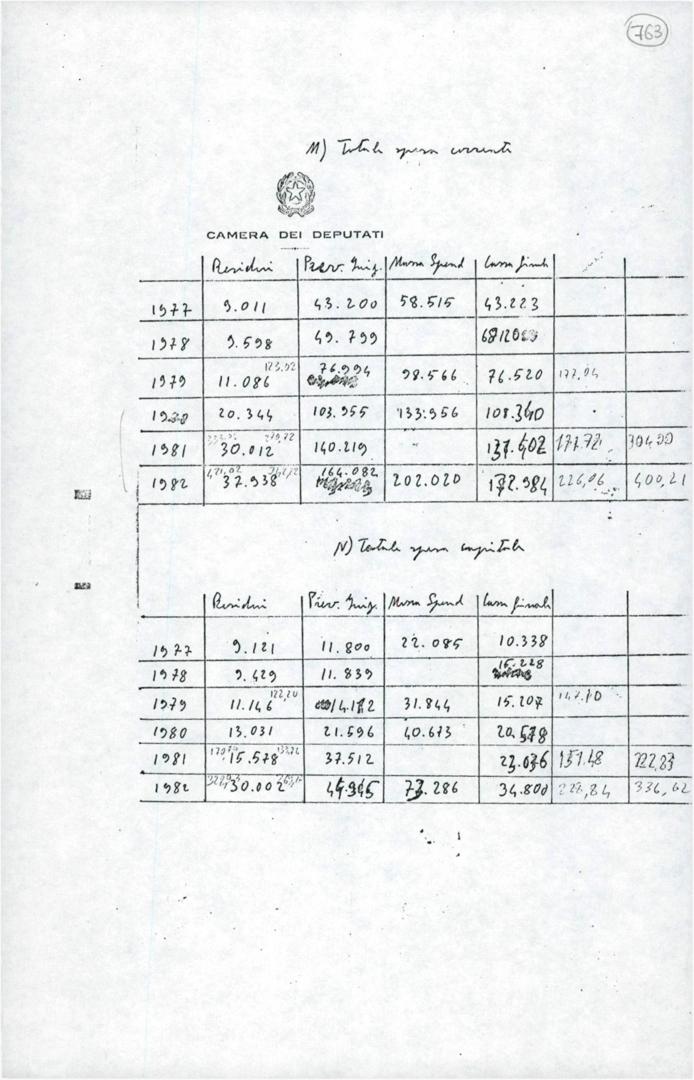 763
M) Totale spesa corrente
CAMERA DEI DEPUTATI
Residui Prev. Iniz. Massa Spend Cassa finale
1977 9.011 43.200 58.515 43.223
1978 9.598 49.799
123,02
1979 11.086 76.994 98.566 76.520 177,04
1980 20.344 103.955 133.956 108.340
1981 30.012 140.219 137.602 177.72 304.90
1982 37.938 164.082 202.020 172.984 226,06 400,21
N) Totale spesa capitale
Residui Prev. Iniz. Massa Spend Cassa finale
1977 9.121 11.800 22.085 10.338
1978 9.429 11.839 15.228
122,20
1979 11.146 14.182 31.844 15.207 147.10
1980 13.031 21.596 40.673 20.578
1981 15.578 37.512 23.036 151.48 222.83
1982 30.002 73.286 34.800 228,84 336,62